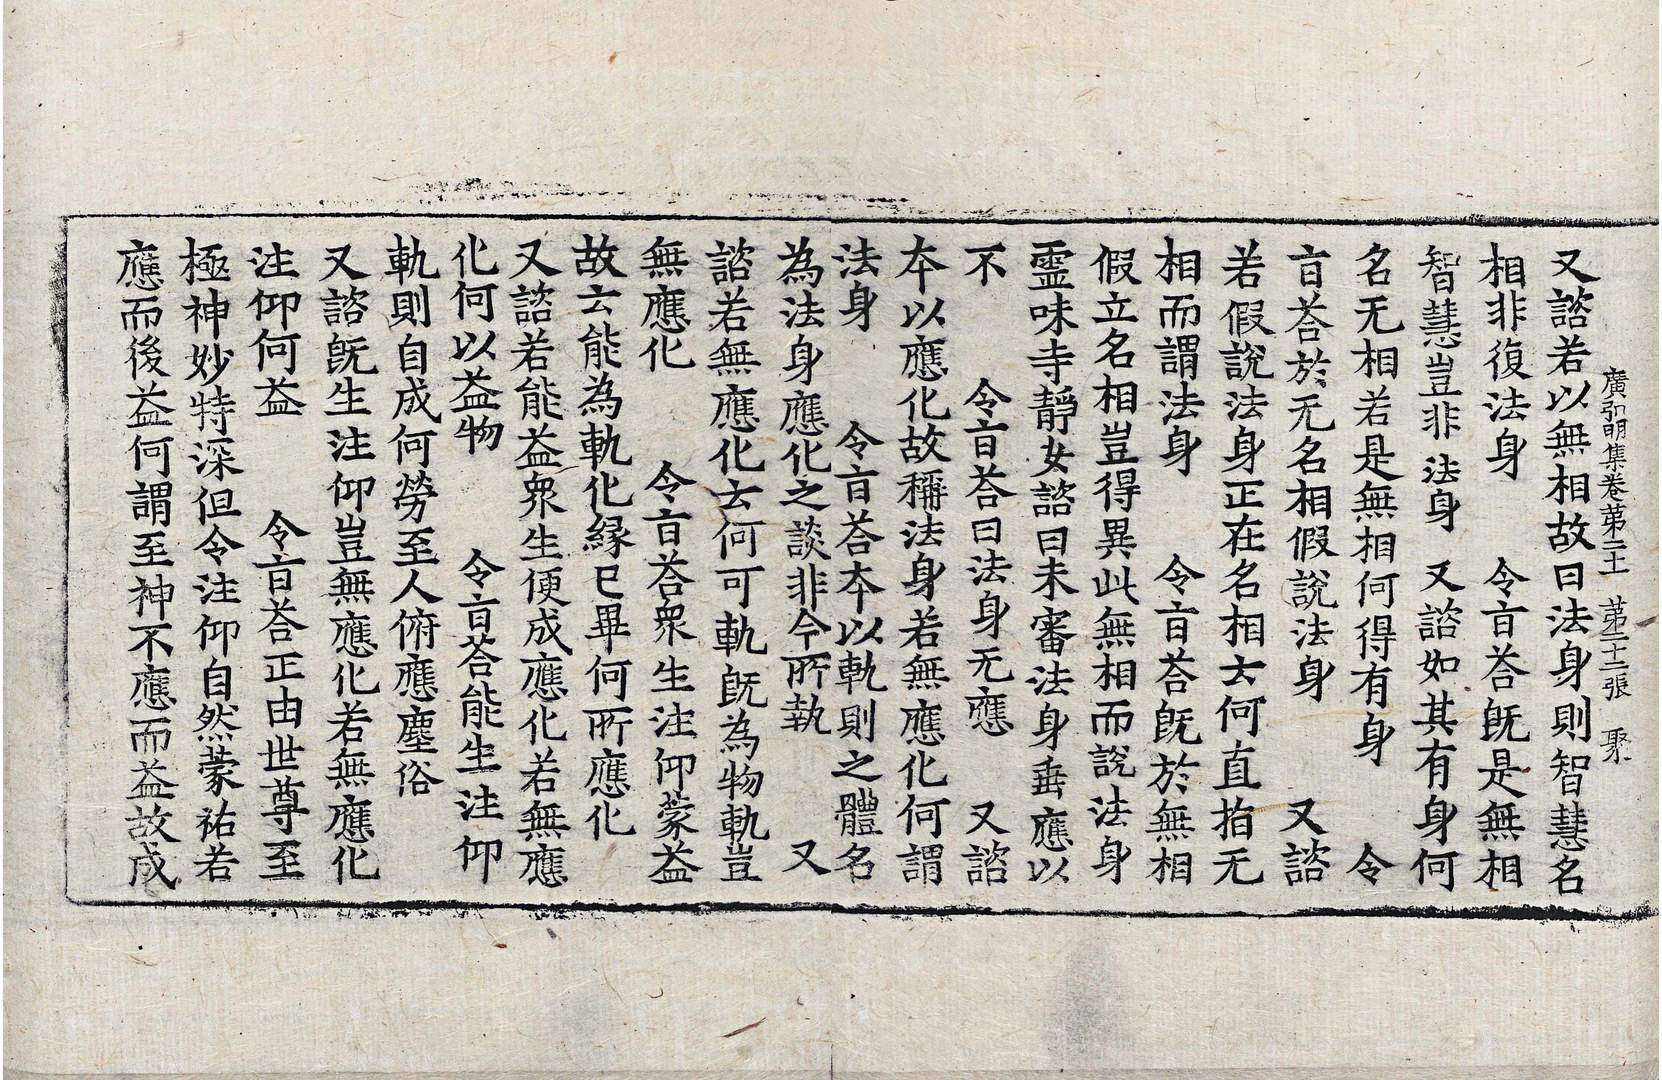 廣弘明集卷苐二十一　苐二十二張　聚
又諮若以無相故曰法身則智慧名
相非復法身　令㫖荅旣是無相
智慧豈非法身　又諮如其有身何
名无相若是無相何得有身　令
㫖荅於无名相假說法身　又諮
若假說法身正在名相云何直指无
相而謂法身　令㫖荅旣於無相
假立名相豈得異此無相而說法身
靈味寺靜安諮曰未審法身垂應以
不　令㫖荅曰法身无應　又諮
本以應化故稱法身若無應化何謂
法身　令㫖荅本以軌則之體名
為法身應化之談非今所執　又
諮若無應化云何可軌旣為物軌豈
無應化　令㫖荅衆生注仰蒙益
故云能為軌化縁已畢何所應化
又諮若能益衆生便成應化若無應
化何以益物　令㫖荅能生注仰
軌則自成何勞至人俯應塵俗
又諮旣生注仰豈無應化若無應化
注仰何益　令㫖荅正由世尊至
極神妙特深但令注仰自然蒙祐若
應而後益何謂至神不應而益故成